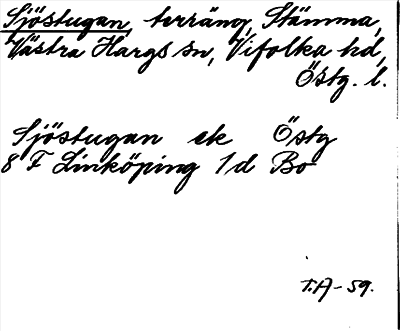 Sjöstugan, terräng, Stämma,
Västra Hargs sn, Vifolka hd,
Östg. l.
Sjöstugan ek Östg
8 F Linköping 1d Bo
T.A-59.